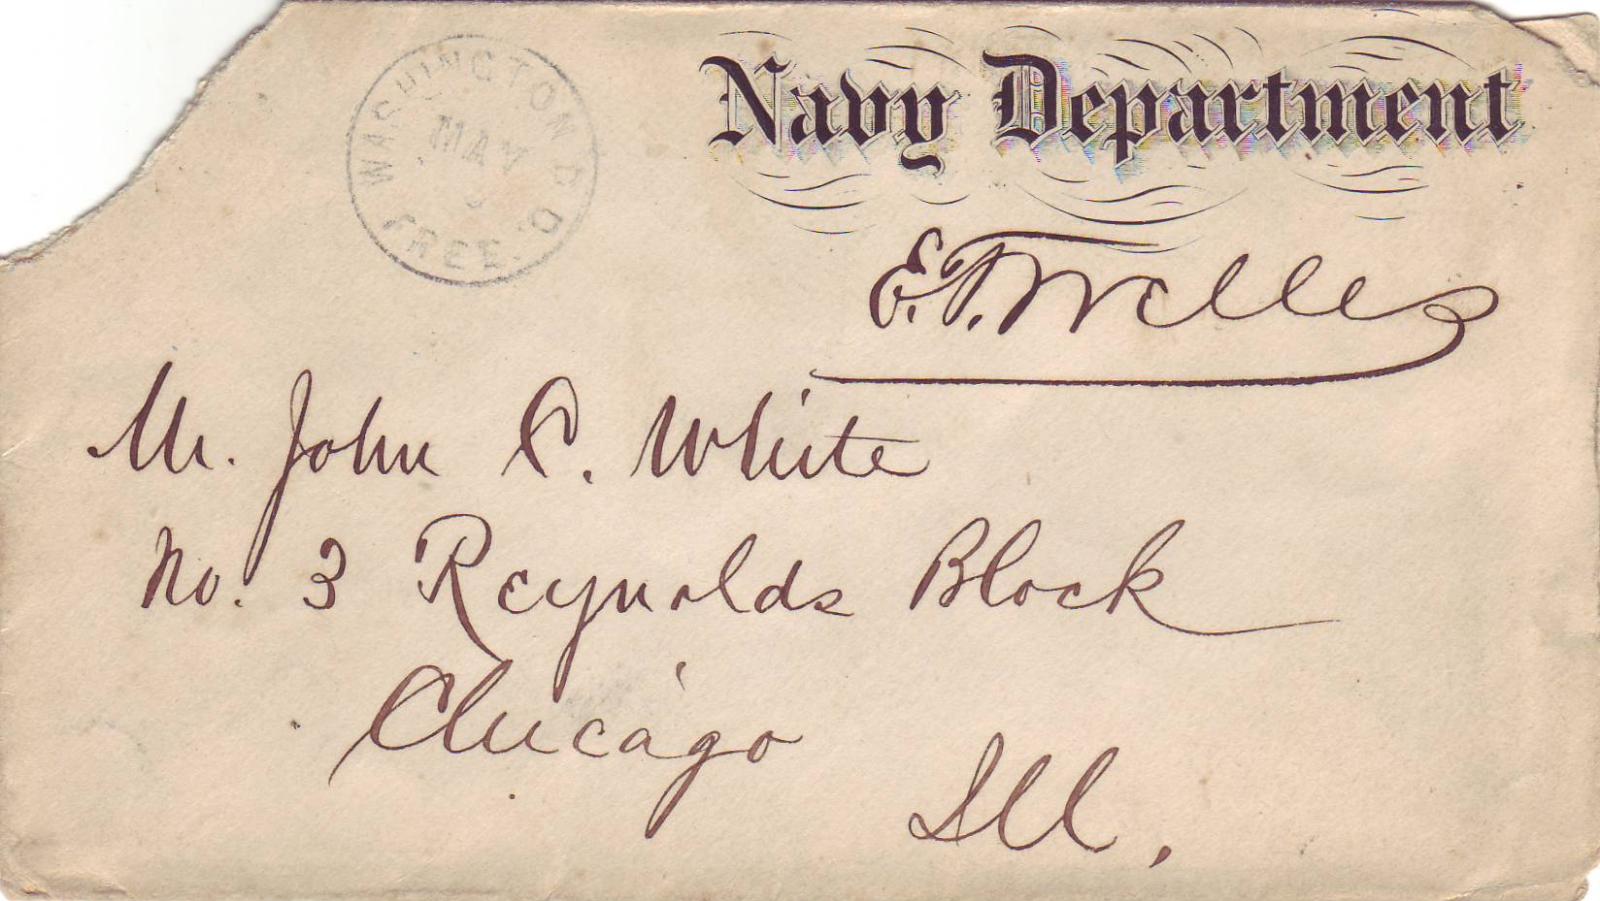 WASHINGTON D.C.
MAY
FREE
Navy Department
E. T. Welles
Mr. John C. White
No. 3 Reynolds Block
Chicago
Ill.